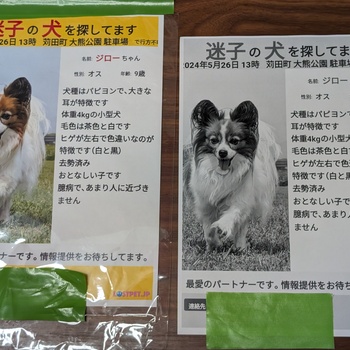 迷子の犬を探してます
26日 13時 苅田町 大熊公園 駐車場 で行方不
名前: ジローちゃん
性別: オス 年齢: 9歳
犬種はパピヨンで、大きな
耳が特徴です
体重4kgの小型犬
毛色は茶色と白です
ヒゲが左右で色違いなのが
特徴です(白と黒)
去勢済み
おとなしい子です
臆病で、あまり人に近づき
ません
ナーです。情報提供をお待ちしてます。
LOSTPET.JP
迷子の犬を探してま
024年5月26日 13時 苅田町 大熊公園 駐車
名前: ジロー
性別: オス
犬種はパピヨン
耳が特徴です
体重4kgの小型
毛色は茶色と白
ヒゲが左右で色
特徴です(白と黒
去勢済み
おとなしい子で
臆病で、あまり人
ません
最愛のパートナーです。情報提供をお待ち
連絡先